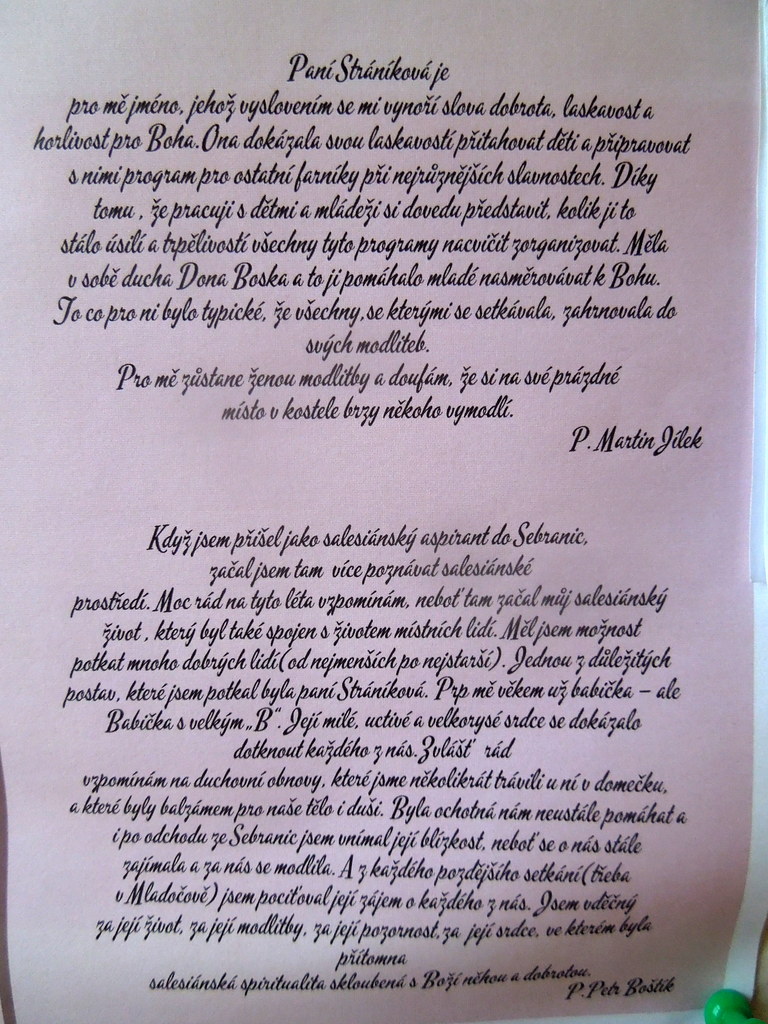 Paní Stráníková je
pro mě jméno, jehož vyslovením se mi vynoří slova dobrota, laskavost a
horlivost pro Boha. Ona dokázala svou laskavostí přitahovat děti a připravovat
s nimi program pro ostatní farníky při nejrůznějších slavnostech. Díky
tomu , že pracuji s dětmi a mládeží si dovedu představit, kolik ji to
stálo úsilí a trpělivostí všechny tyto programy nacvičit zorganizovat. Měla
v sobě ducha Dona Boska a to ji pomáhalo mladé nasměrovávat k Bohu.
To co pro ni bylo typické, že všechny,se kterými se setkávala, zahrnovala do
svých modliteb.
Pro mě zůstane ženou modlitby a doufám, že si na své prázdné
místo v kostele brzy někoho vymodlí.
P. Martin Jílek
Když jsem přišel jako salesiánský aspirant do Sebranic,
začal jsem tam více poznávat salesiánské
prostředí. Moc rád na tyto léta vzpomínám, neboť tam začal můj salesiánský
život , který byl také spojen s životem místních lidí. Měl jsem možnost
potkat mnoho dobrých lidí(od nejmenších po nejstarší). Jednou z důležitých
postav, které jsem potkal byla paní Stráníková. Prp mě věkem už babička – ale
Babička s velkým „B“. Její milé, uctivé a velkorysé srdce se dokázalo
dotknout každého z nás.Zvlášť rád
vzpomínám na duchovní obnovy, které jsme několikrát trávili u ní v domečku,
a které byly balzámem pro naše tělo i duši. Byla ochotná nám neustále pomáhat a
i po odchodu ze Sebranic jsem vnímal její blízkost, neboť se o nás stále
zajímala a za nás se modlila. A z každého pozdějšího setkání(třeba
v Mladočově) jsem pociťoval její zájem o každého z nás. Jsem vděčný
za její život, za její modlitby, za její pozornost,za její srdce, ve kterém byla
přítomna
salesiánská spiritualita skloubená s Boží něhou a dobrotou.
P.Petr Boštík